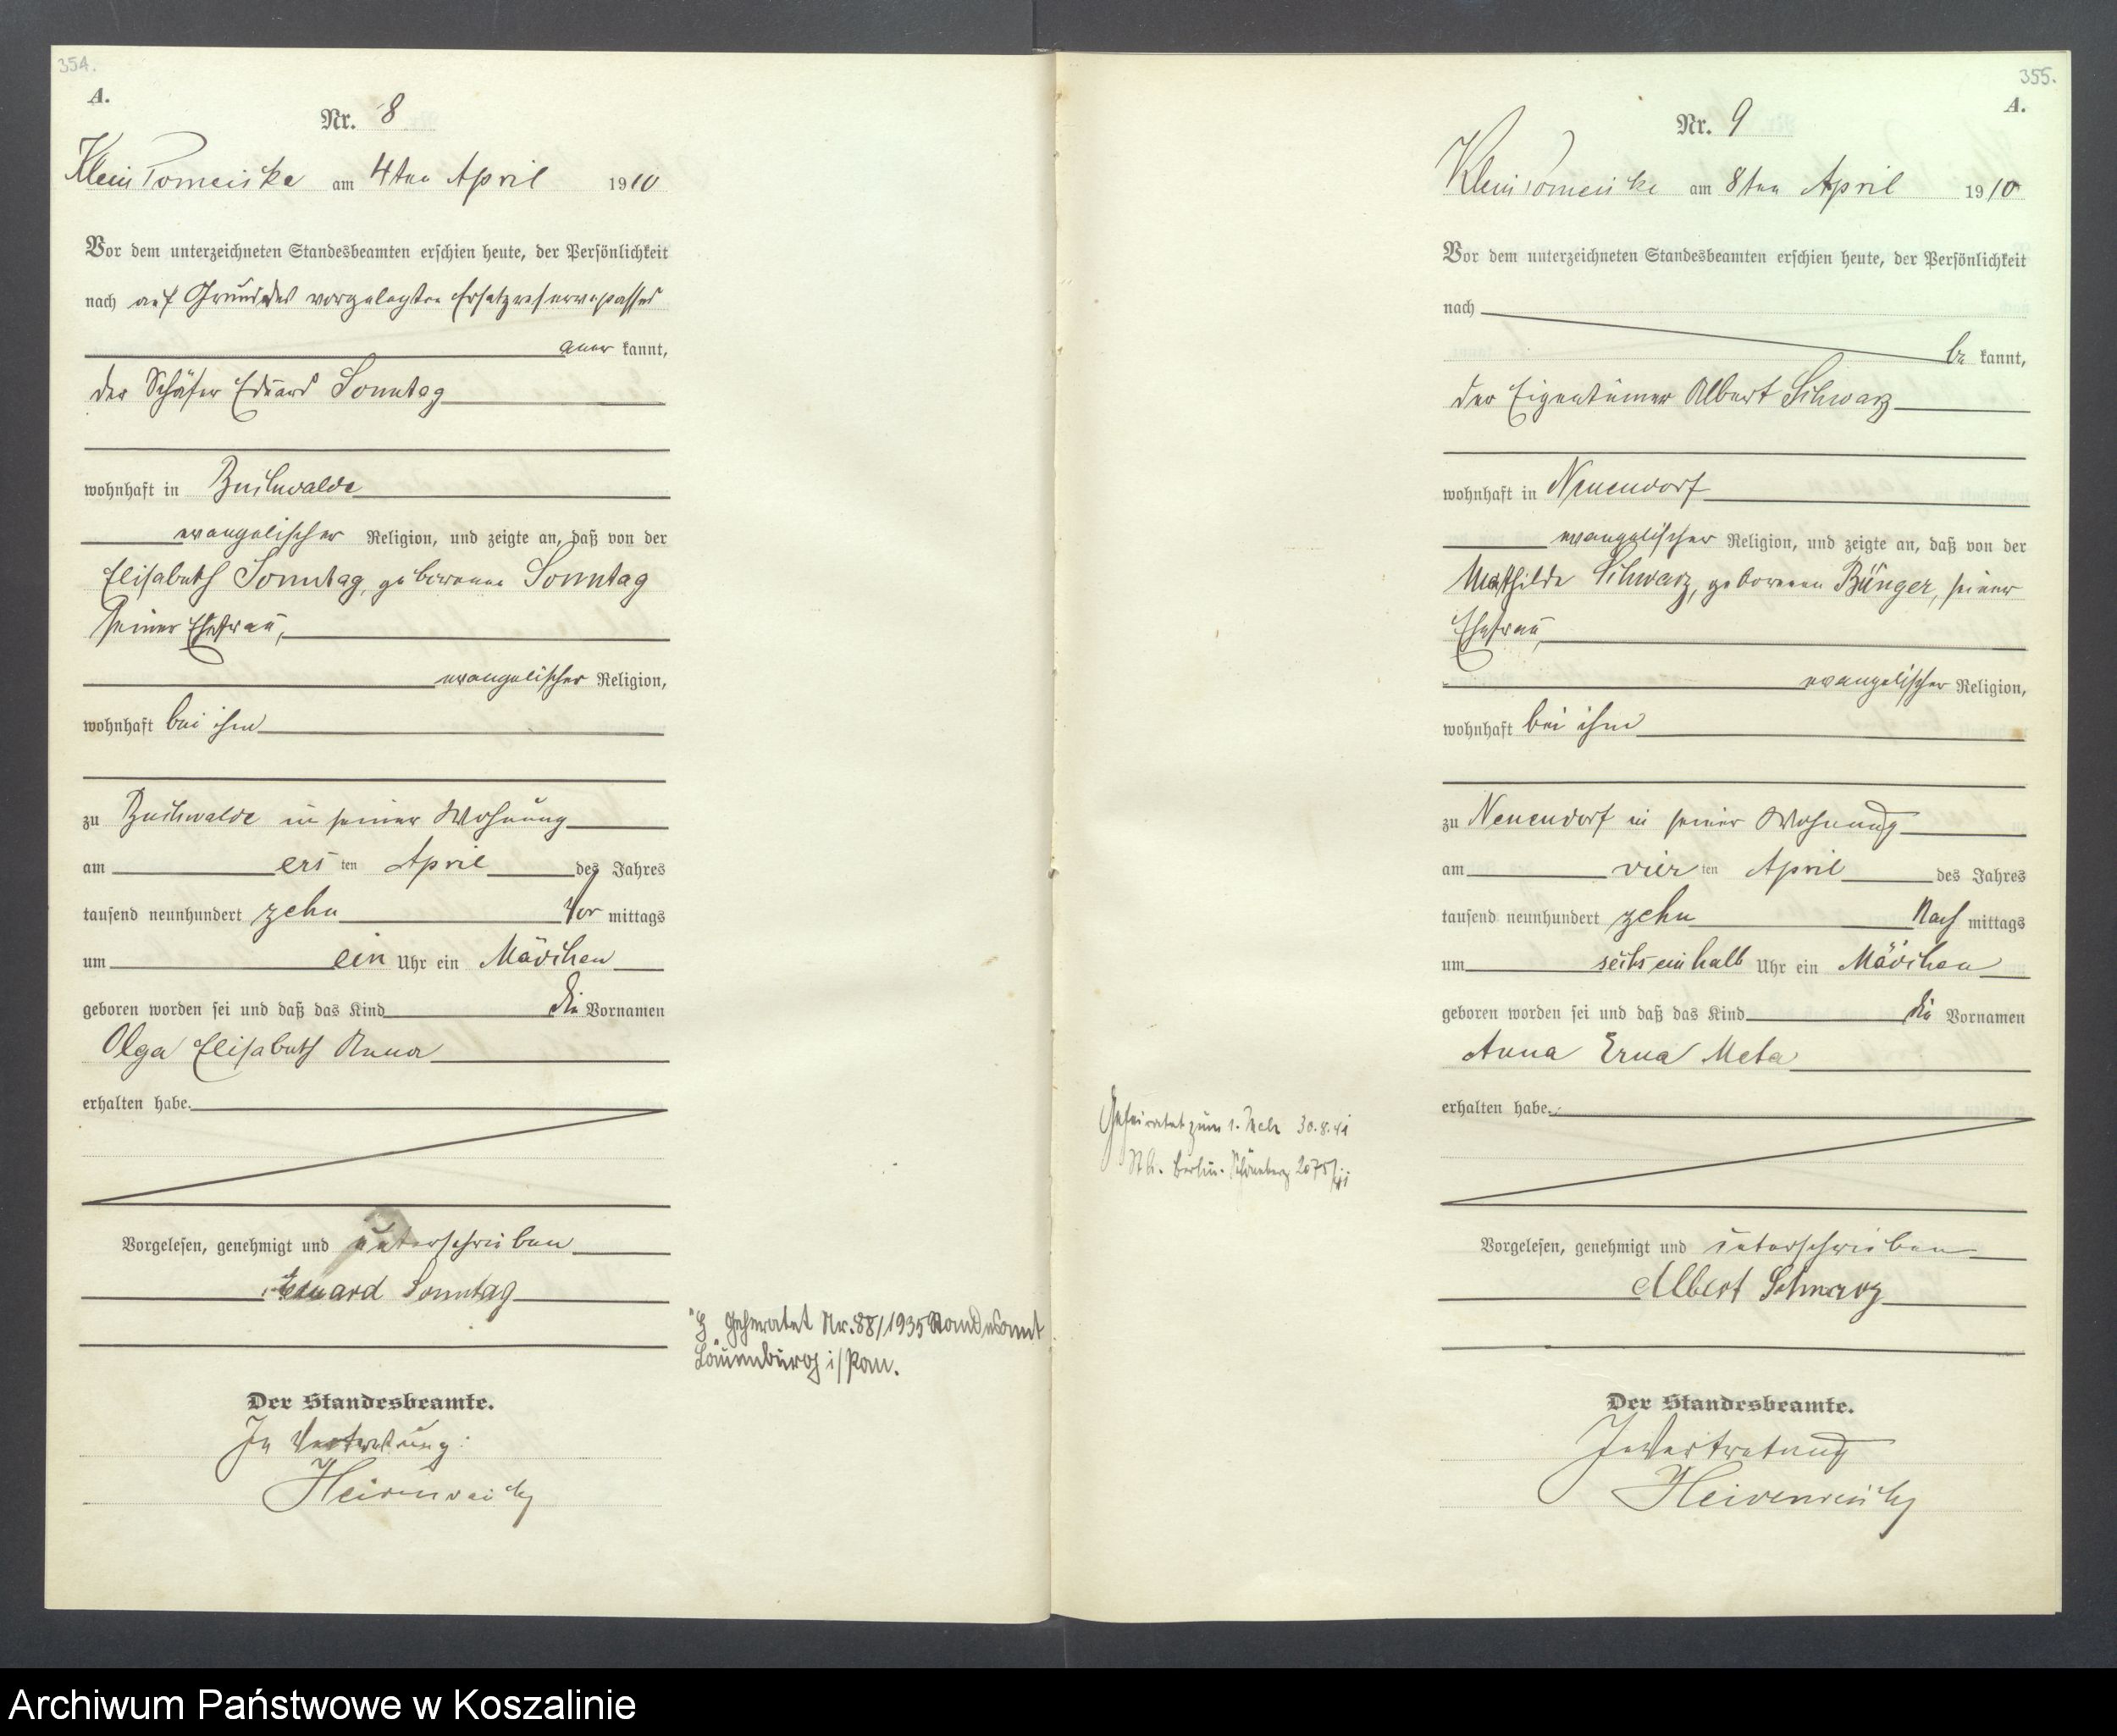 354.
A.
Nr. 8
Klein Pomeiske am 4ten April 1910
Vor dem unterzeichneten Standesbeamten erschien heute, der Persönlichkeit
nach auf Grund des vorgelegten Ersatzreservepasses
aner kannt,
der Schäfer Eduard Sonntag
wohnhaft in Buchwalde
evangelischer Religion, und zeigte an, daß von der
Elisabeth Sonntag, geborenen Sonntag
seiner Ehefrau,
evangelischer Religion,
wohnhaft bei ihm
zu Buchwalde in seiner Wohnung
am ers ten April des Jahres
tausend neunhundert zehn Vor mittags
um ein Uhr ein Mädchen
geboren worden sei und daß das Kind die Vornamen
Olga Elisabeth Anna
erhalten habe.
Vorgelesen, genehmigt und unterschrieben
Eduard Sonntag
Geheiratet Nr. 88/1935 Standesamt
Lauenburg i/Pom.
Der Standesbeamte.
In Vertretung:
Heidenreich
355.
A.
Nr. 9
Klein Pomeiske am 8ten April 1910
Vor dem unterzeichneten Standesbeamten erschien heute, der Persönlichkeit
nach
be kannt,
der Eigentümer Albert Schwarz
wohnhaft in Neuendorf
evangelischer Religion, und zeigte an, daß von der
Mathilde Schwarz, geborenen Bünger, seiner
Ehefrau,
evangelischer Religion,
wohnhaft bei ihm
zu Neuendorf in seiner Wohnung
am vier ten April des Jahres
tausend neunhundert zehn Nach mittags
um sechs ein halb Uhr ein Mädchen
geboren worden sei und daß das Kind die Vornamen
Anna Erna Meta
erhalten habe.
Geheiratet zum 1. 30.8.41
St.A. Berlin-Schöneberg 2075/41
Vorgelesen, genehmigt und unterschrieben
Albert Schwarz
Der Standesbeamte.
In Vertretung
Heidenreich
Archiwum Państwowe w Koszalinie